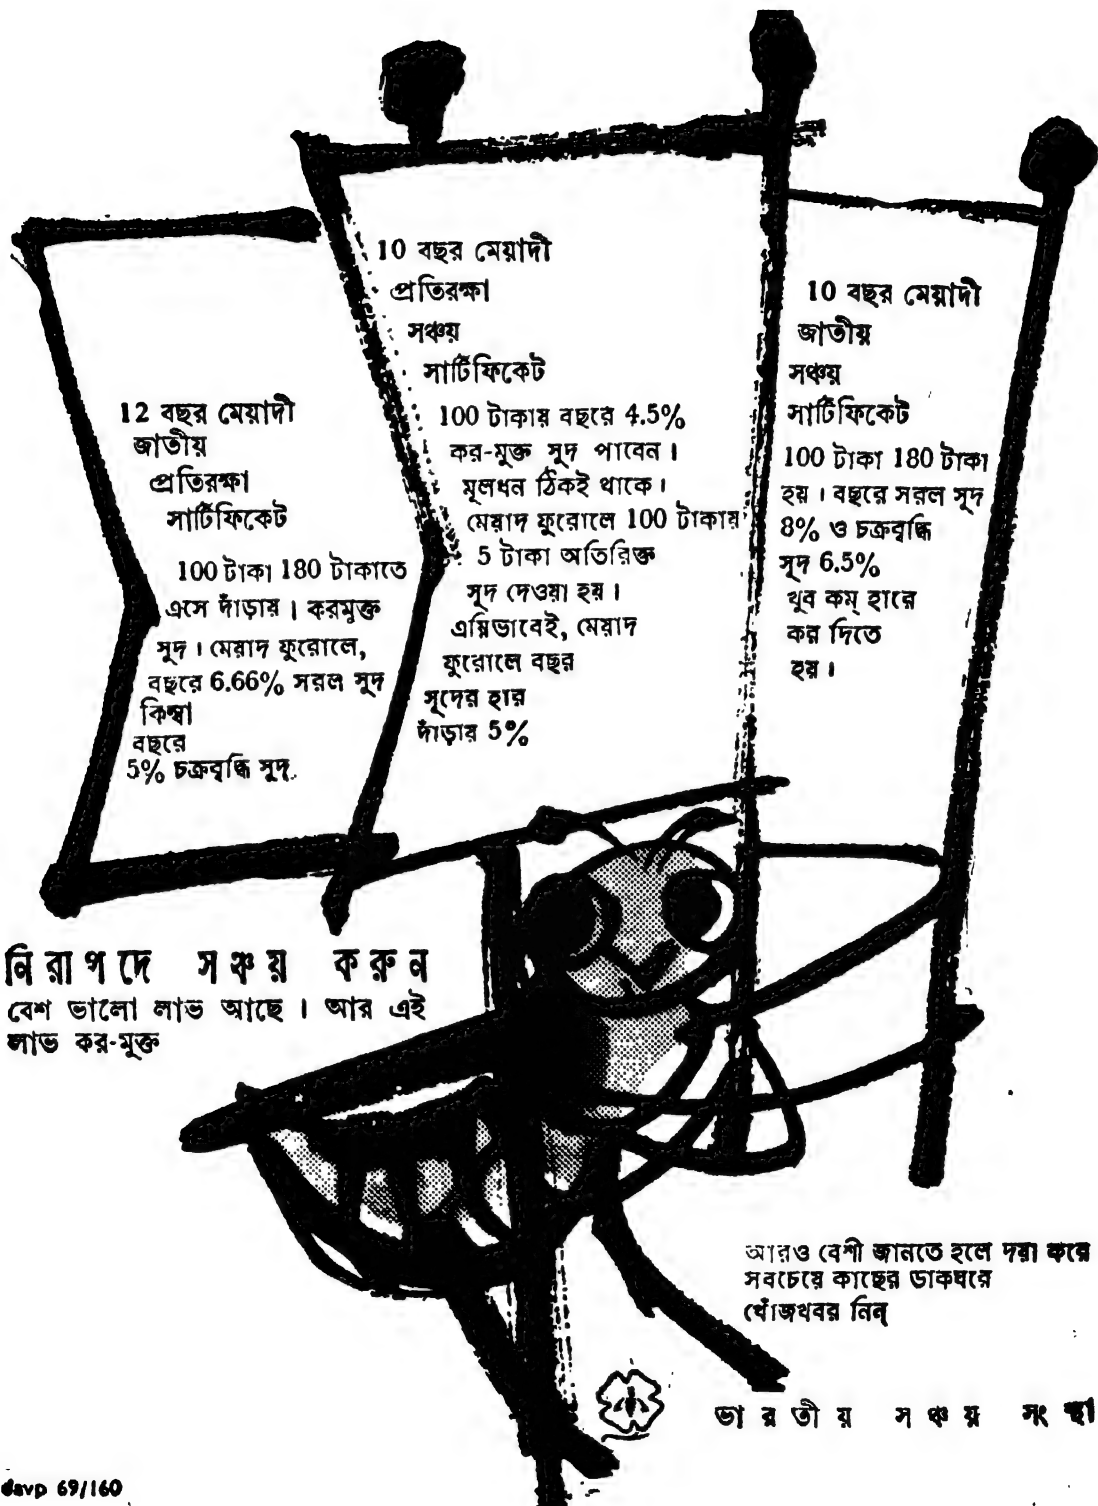 12 বছর মেয়াদী
জাতীয়
প্রতিরক্ষা
সার্টিফিকেট
100 টাকা 180 টাকাতে
এসে দাঁড়ায়। করমুক্ত
সুদ। মেয়াদ ফুরোলে,
বছরে 6.66% সরল সুদ
কিম্বা
বছরে
5% চক্রবৃদ্ধি সুদ.
10 বছর মেয়াদী
প্রতিরক্ষা
সঞ্চয়
সার্টিফিকেট
100 টাকায় বছরে 4.5%
কর-মুক্ত সুদ পাবেন।
মূলধন ঠিকই থাকে।
মেয়াদ ফুরোলে 100 টাকায়
5 টাকা অতিরিক্ত
সুদ দেওয়া হয়।
এম্নিভাবেই, মেয়াদ
ফুরোলে বছর
সূদের হার
দাঁড়ায় 5%
10 বছর মেয়াদী
জাতীয়
সঞ্চয়
সার্টিফিকেট
100 টাকা 180 টাকা
হয়। বছরে সরল সুদ
8% ও চক্রবৃদ্ধি
সূদ 6.5%
খুব কম্ হারে
কর দিতে
হয়।
নিরাপদে সঞ্চয় করুন
বেশ ভালো লাভ আছে। আর এই
লাভ কর-মুক্ত
আরও বেশী জানতে হলে দয়া করে
সবচেয়ে কাছের ডাকঘরে
খোঁজখবর নিন্
ভারতীয় সঞ্চয় সংস্থা
davp 69/160